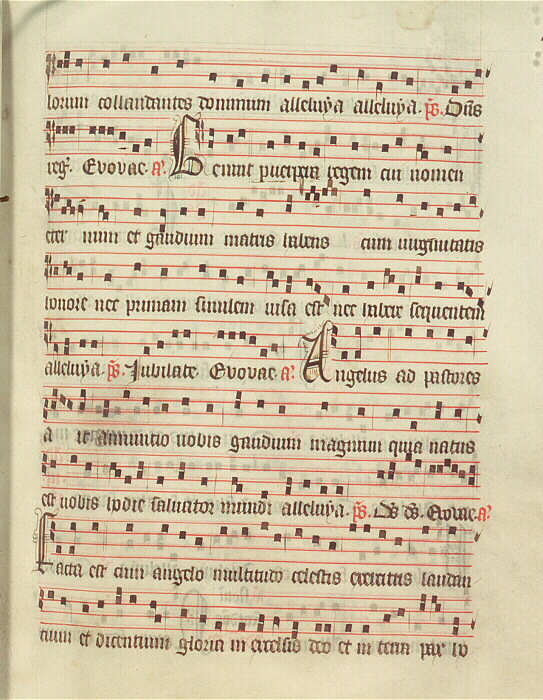 lorum collaudantes dominum alleluya alleluya. ps. Dns
reg. Evovae. a. Genuit puerpera regem cui nomen
eter num et gaudium matris habens cum virginitatis
honore nec primam similem visa est nec habere sequentem
alleluya. ps. Jubilate. Evovae. a. Angelus ad pastores
a it annuntio vobis gaudium magnum quia natus
est vobis hodie salvator mundi alleluya. ps. Ds ds. Evovae. a.
Facta est cum angelo multitudo celestis exercitus laudan
tium et dicentium gloria in excelsis deo et in terra pax ho